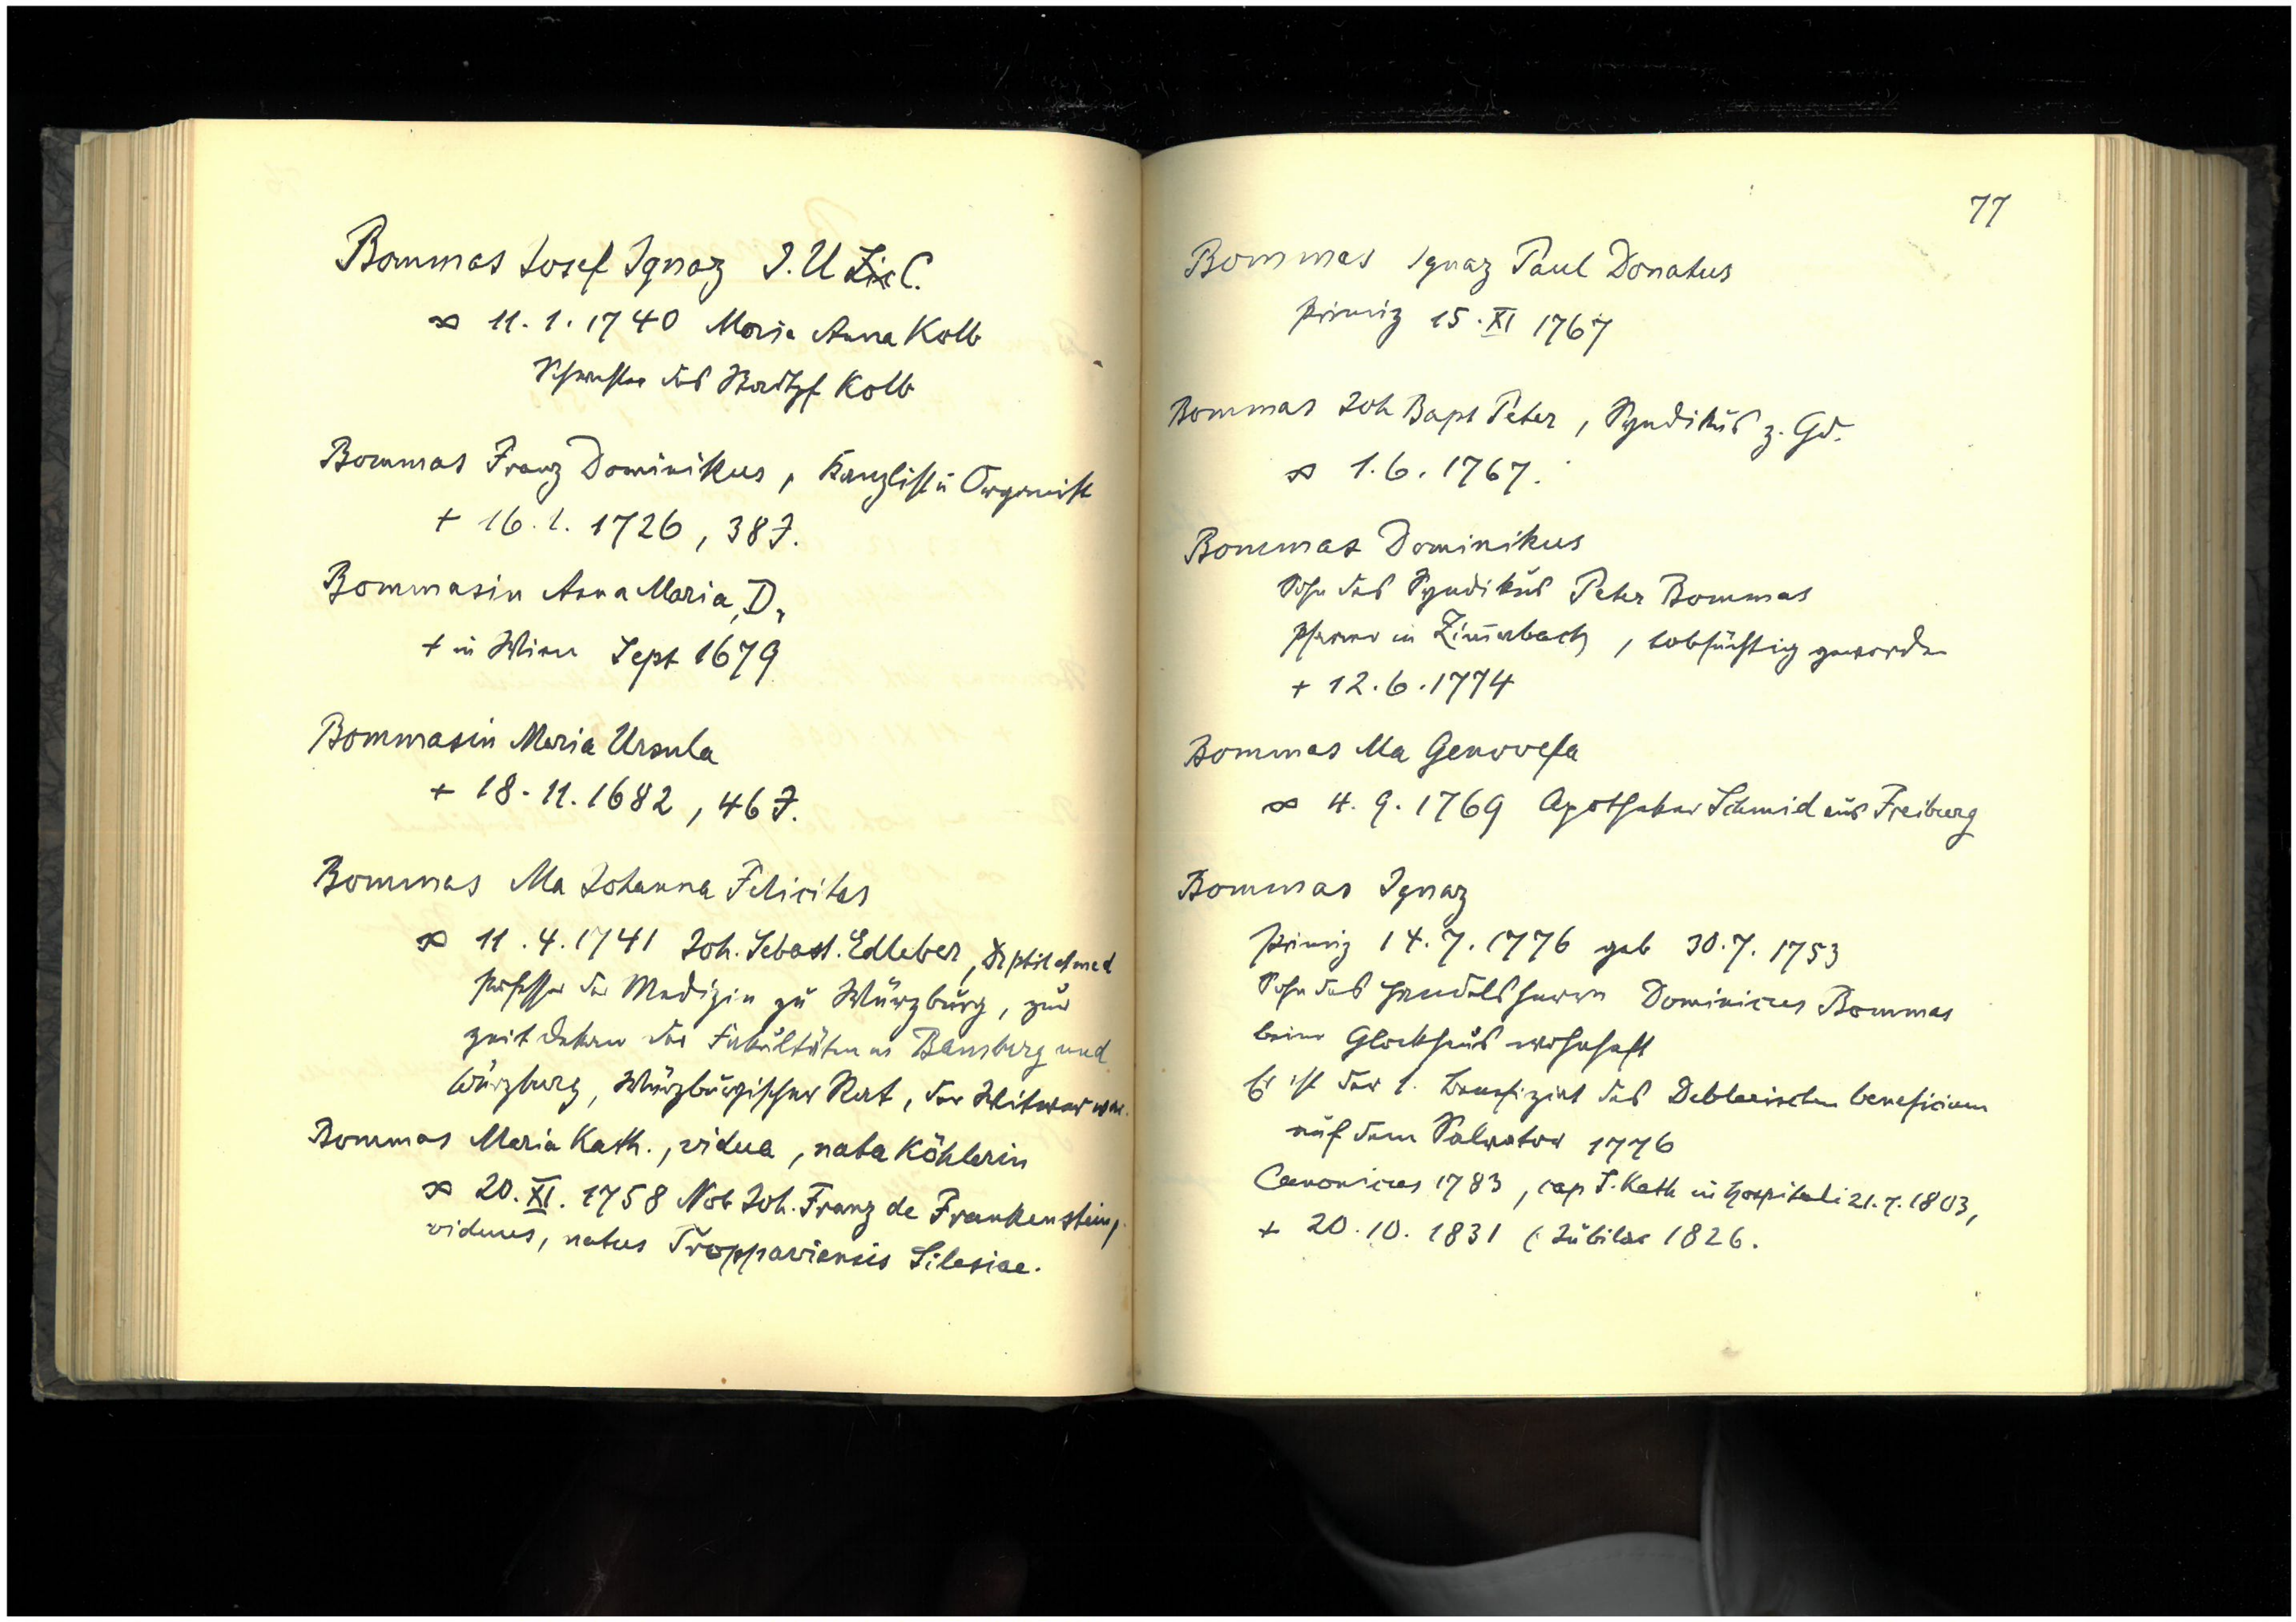 Bommas Josef Ignaz J. U Lic C.
∞ 11. 1. 1740 Maria Anna Kolb
Schwester des Stadtpf Kolb
Bommas Franz Dominikus, Kanzlist u Organist
+ 16. 1. 1726, 38 J.
Bommasin Anna Maria, D,
+ in Wien Sept 1679
Bommasin Maria Ursula
+ 18. 11. 1682, 46 J.
Bommas Ma Johanna Felicitas
∞ 11. 4. 1741 Joh. Sebast. Edleber, Dr phil et med
Professor der Medizin zu Würzburg, zur
zeit Dekan der Fakultäten in Bamberg und
Würzburg, Würzburgischer Rat, der Witwer war.
Bommas Maria Kath., vidua, nata Köhlerin
∞ 20. XI. 1758 Nob Joh. Franz de Frankenstein,
viduus, natus Troppaviensis Silesiae.
77
Bommas Ignaz Paul Donatus
Primiz 15. XI 1767
Bommas Joh Bapt Peter, Syndikus z. Gd.
∞ 1. 6. 1767.
Bommas Dominikus
Sohn des Syndikus Peter Bommas
Pfarrer in Zim̄erbach, tobsüchtig geworden
+ 12. 6. 1774
Bommas Ma Genovefa
∞ 4. 9. 1769 Apotheker Schmid aus Freiburg
Bommas Ignaz
Primiz 14. 7. 1776 geb 30. 7. 1753
Sohn des Handelsherrn Dominicus Bommas
beim Glockhaus wohnhaft
Er ist der 1. Benefiziat des Deblerischen beneficium
auf dem Salvator 1776
Canonicus 1783, cap S. Kath in hospitali 21. 7. 1803,
+ 20. 10. 1831 (Jubilar 1826.